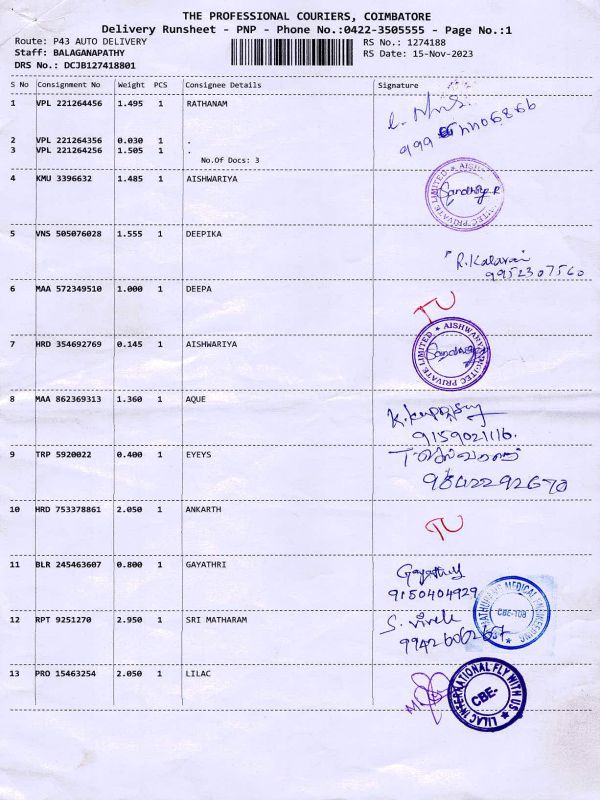 THE PROFESSIONAL COURIERS, COIMBATORE
Delivery Runsheet - PNP - Phone No.:0422-3505555 - Page No.:1
Route: P43 AUTO DELIVERY RS No.: 1274188
Staff: BALAGANAPATHY RS Date: 15-Nov-2023
DRS No.: DCJB127418801
S No Consignment No Weight PCS Consignee Details Signature
1 VPL 221264456 1.495 1 RATHANAM
2 VPL 221264356 0.030 1 .
3 VPL 221264256 1.505 1 .
No.Of Docs: 3
4 KMU 3396632 1.485 1 AISHWARIYA
Sandhiya R
5 VNS 505076028 1.555 1 DEEPIKA
R. Kalavai
9952307560
6 MAA 572349510 1.000 1 DEEPA
7 HRD 354692769 0.145 1 AISHWARIYA
8 MAA 862369313 1.360 1 AQUE
9159021116.
9 TRP 5920022 0.400 1 EYEYS
9842292670
10 HRD 753378861 2.050 1 ANKARTH
11 BLR 245463607 0.800 1 GAYATHRI
Gayathry
9150404929
12 RPT 9251270 2.950 1 SRI MATHARAM
S. Vivek
MEDICAL ENGINEERING
13 PRO 15463254 2.050 1 LILAC
LILAC INTERNATIONAL FLY WITH US
CBE-